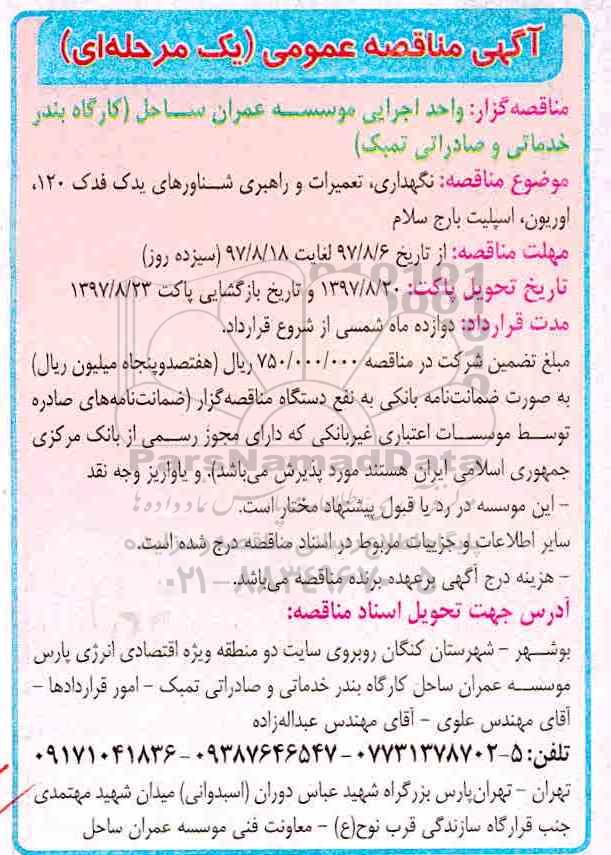 آگهی مناقصه عمومی (یک مرحله‌ای)
مناقصه‌گزار: واحد اجرایی موسسه عمران ساحل (کارگاه بندر
خدماتی و صادراتی تمبک)
موضوع مناقصه: نگهداری، تعمیرات و راهبری شناورهای یدک فدک ۱۲۰،
اوریون، اسپلیت بارج سلام
مهلت مناقصه: از تاریخ ۹۷/۸/۶ لغایت ۹۷/۸/۱۸ (سیزده روز)
تاریخ تحویل پاکت: ۱۳۹۷/۸/۲۰ و تاریخ بازگشایی پاکت ۱۳۹۷/۸/۲۳
مدت قرارداد: دوازده ماه شمسی از شروع قرارداد.
مبلغ تضمین شرکت در مناقصه ۷۵۰/۰۰۰/۰۰۰ ریال (هفتصدوپنجاه میلیون ریال)
به صورت ضمانت‌نامه بانکی به نفع دستگاه مناقصه‌گزار (ضمانت‌نامه‌های صادره
توسط موسسات اعتباری غیربانکی که دارای مجوز رسمی از بانک مرکزی
جمهوری اسلامی ایران هستند مورد پذیرش می‌باشد). و یاواریز وجه نقد
ParsNamadData
- این موسسه در رد یا قبول پیشنهاد مختار است.
سایر اطلاعات و جزییات مربوط در اسناد مناقصه درج شده است.
- هزینه درج آگهی برعهده برنده مناقصه می‌باشد.
۰۲۱-۸۸۳۴۹۶۷۰-۵
آدرس جهت تحویل اسناد مناقصه:
بوشهر - شهرستان کنگان روبروی سایت دو منطقه ویژه اقتصادی انرژی پارس
موسسه عمران ساحل کارگاه بندر خدماتی و صادراتی تمبک - امور قراردادها -
آقای مهندس علوی - آقای مهندس عبداله‌زاده
تلفن: ۵-۰۷۷۳۱۳۷۸۷۰۲ - ۰۹۳۸۷۶۴۶۵۴۷ - ۰۹۱۷۱۰۴۱۸۳۶
تهران - تهران‌پارس بزرگراه شهید عباس دوران (اسبدوانی) میدان شهید مهتمدی
جنب قرارگاه سازندگی قرب نوح(ع) - معاونت فنی موسسه عمران ساحل